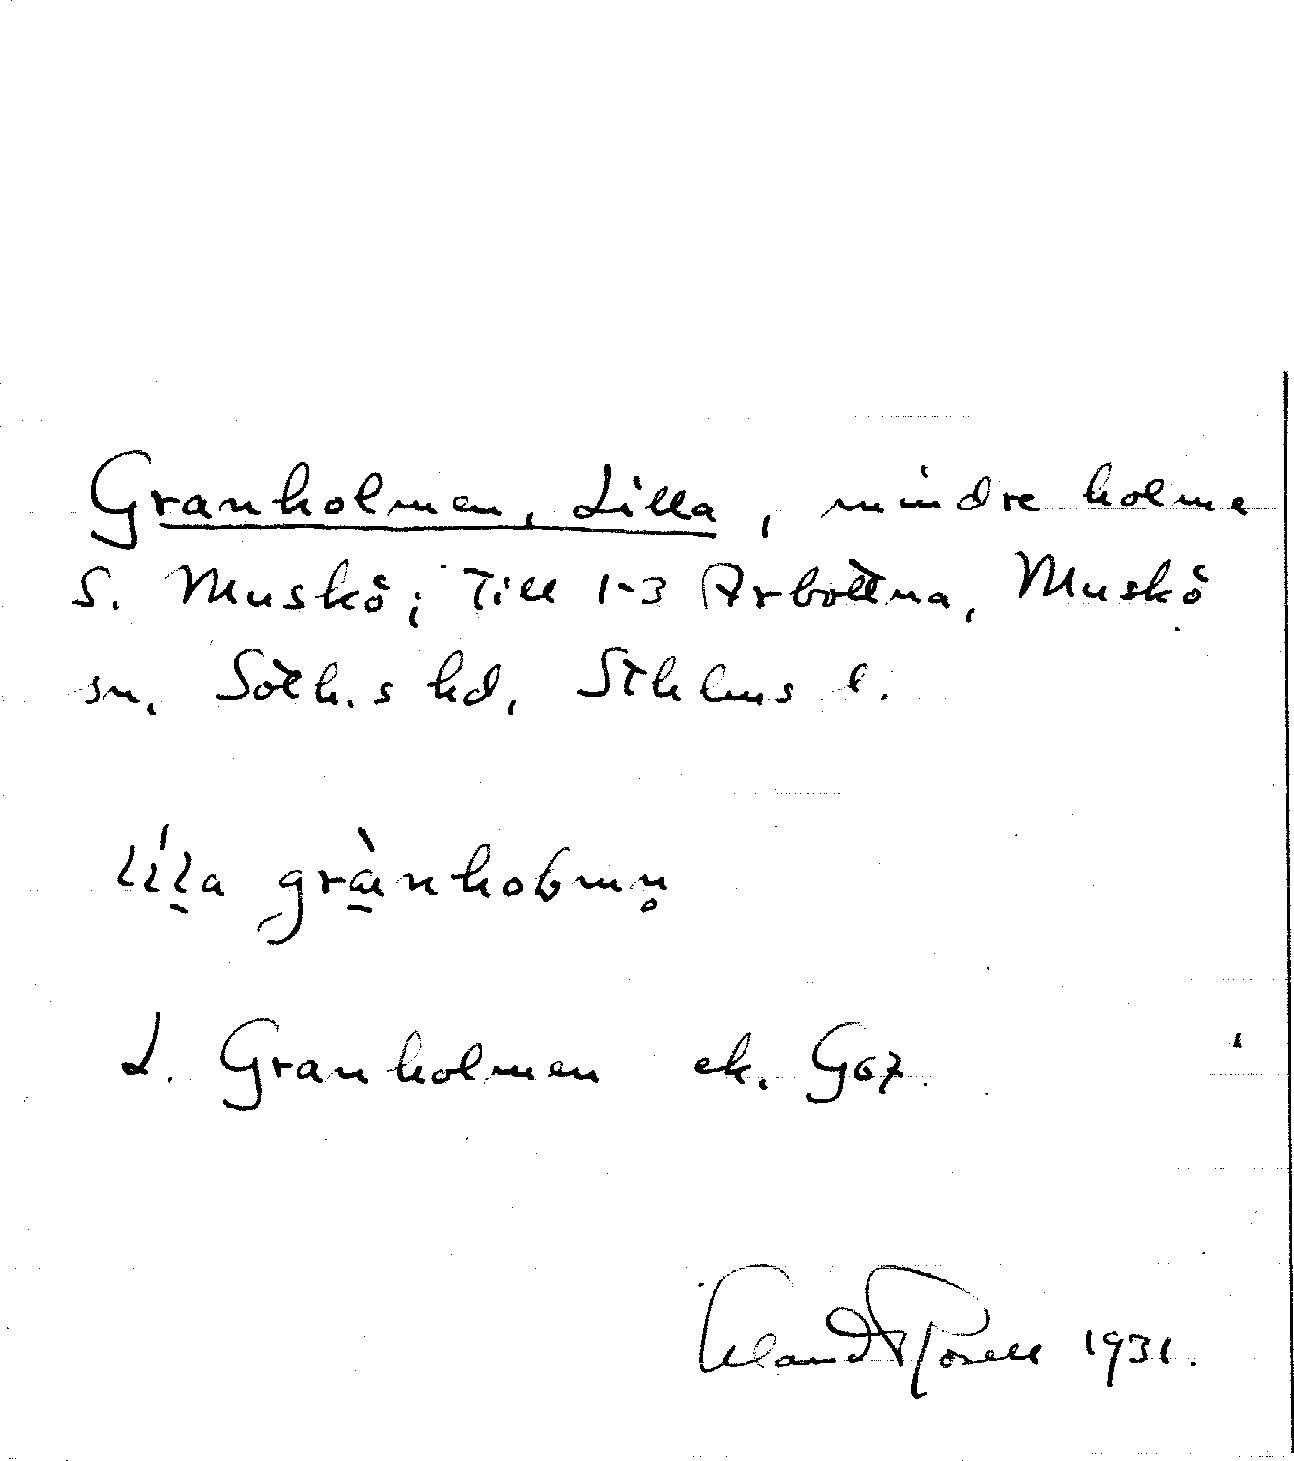 Granholmen, Lilla, mindre holme
S. Muskö; Till 1-3 Arbottna, Muskö
sn, Soth.s hd, Sthlms l.
líl̠a grà̠nholmn̥
L. Granholmen ek. G67.
Claand Rosell 1931.